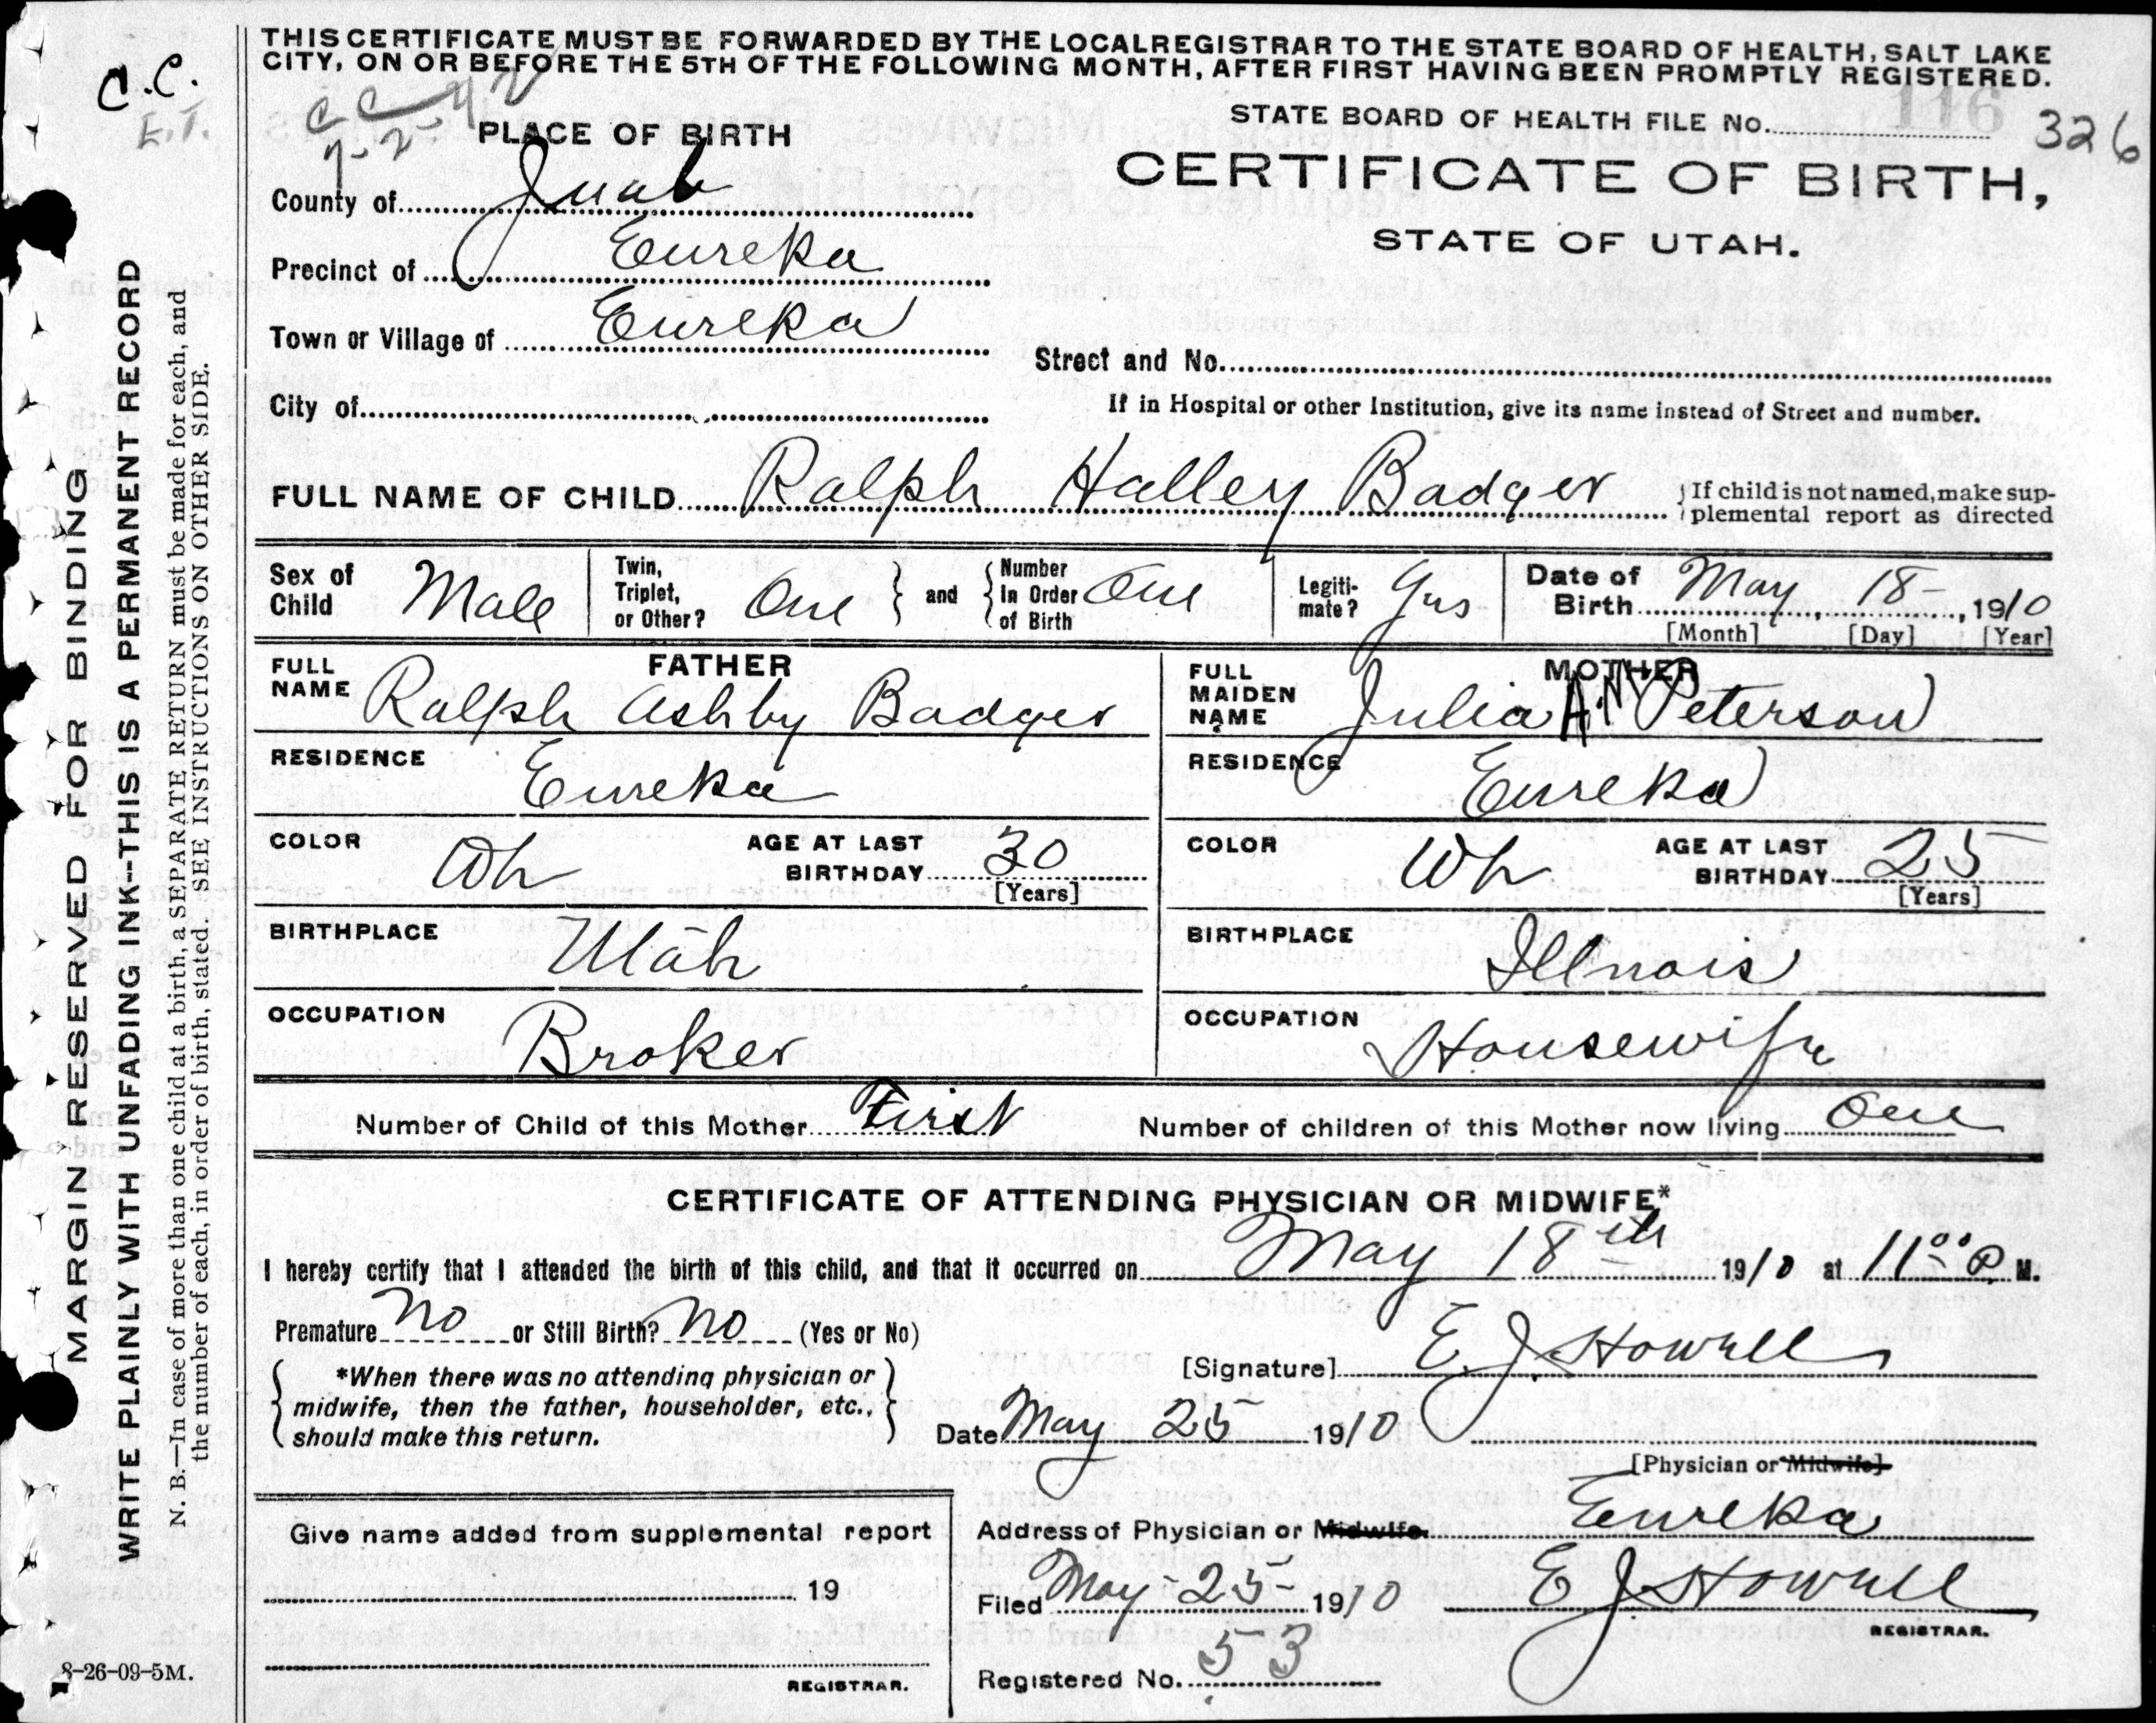 THIS CERTIFICATE MUST BE FORWARDED BY THE LOCAL REGISTRAR TO THE STATE BOARD OF HEALTH, SALT LAKE
CITY, ON OR BEFORE THE 5TH OF THE FOLLOWING MONTH, AFTER FIRST HAVING BEEN PROMPTLY REGISTERED.
C.C.
E.T.
CC
7-2-42
STATE BOARD OF HEALTH FILE No. 116 326
PLACE OF BIRTH
CERTIFICATE OF BIRTH,
STATE OF UTAH.
County of Juab
Precinct of Eureka
Town or Village of Eureka
Street and No.
City of
If in Hospital or other Institution, give its name instead of Street and number.
FULL NAME OF CHILD Ralph Halley Badger
If child is not named, make sup-
plemental report as directed
Sex of Child Male
Twin, Triplet, or Other? One and Number In Order of Birth One
Legiti-mate? Yes
Date of Birth May 18 - , 1910
[Month] [Day] [Year]
FATHER
FULL NAME Ralph Ashby Badger
RESIDENCE Eureka
COLOR Wh AGE AT LAST BIRTHDAY 30
[Years]
BIRTHPLACE Utah
OCCUPATION Broker
MOTHER
FULL MAIDEN NAME Julia A. Peterson
RESIDENCE Eureka
COLOR Wh AGE AT LAST BIRTHDAY 25
[Years]
BIRTHPLACE Illnois
OCCUPATION Housewife
Number of Child of this Mother First Number of children of this Mother now living One
CERTIFICATE OF ATTENDING PHYSICIAN OR MIDWIFE*
I hereby certify that I attended the birth of this child, and that it occurred on May 18th 1910 at 11 00 P. M.
Premature No or Still Birth? No (Yes or No)
[Signature] E. J. Howell
*When there was no attending physician or
midwife, then the father, householder, etc.,
should make this return.
Date May 25 1910
[Physician or Midwife]
Address of Physician or Midwife Eureka
Give name added from supplemental report
19
REGISTRAR.
Filed May - 25 - 1910 E J Howell
REGISTRAR.
Registered No. 53
8-26-09-5M.
MARGIN RESERVED FOR BINDING
WRITE PLAINLY WITH UNFADING INK--THIS IS A PERMANENT RECORD
N. B.—In case of more than one child at a birth, a SEPARATE RETURN must be made for each, and
the number of each, in order of birth, stated. SEE INSTRUCTIONS ON OTHER SIDE.